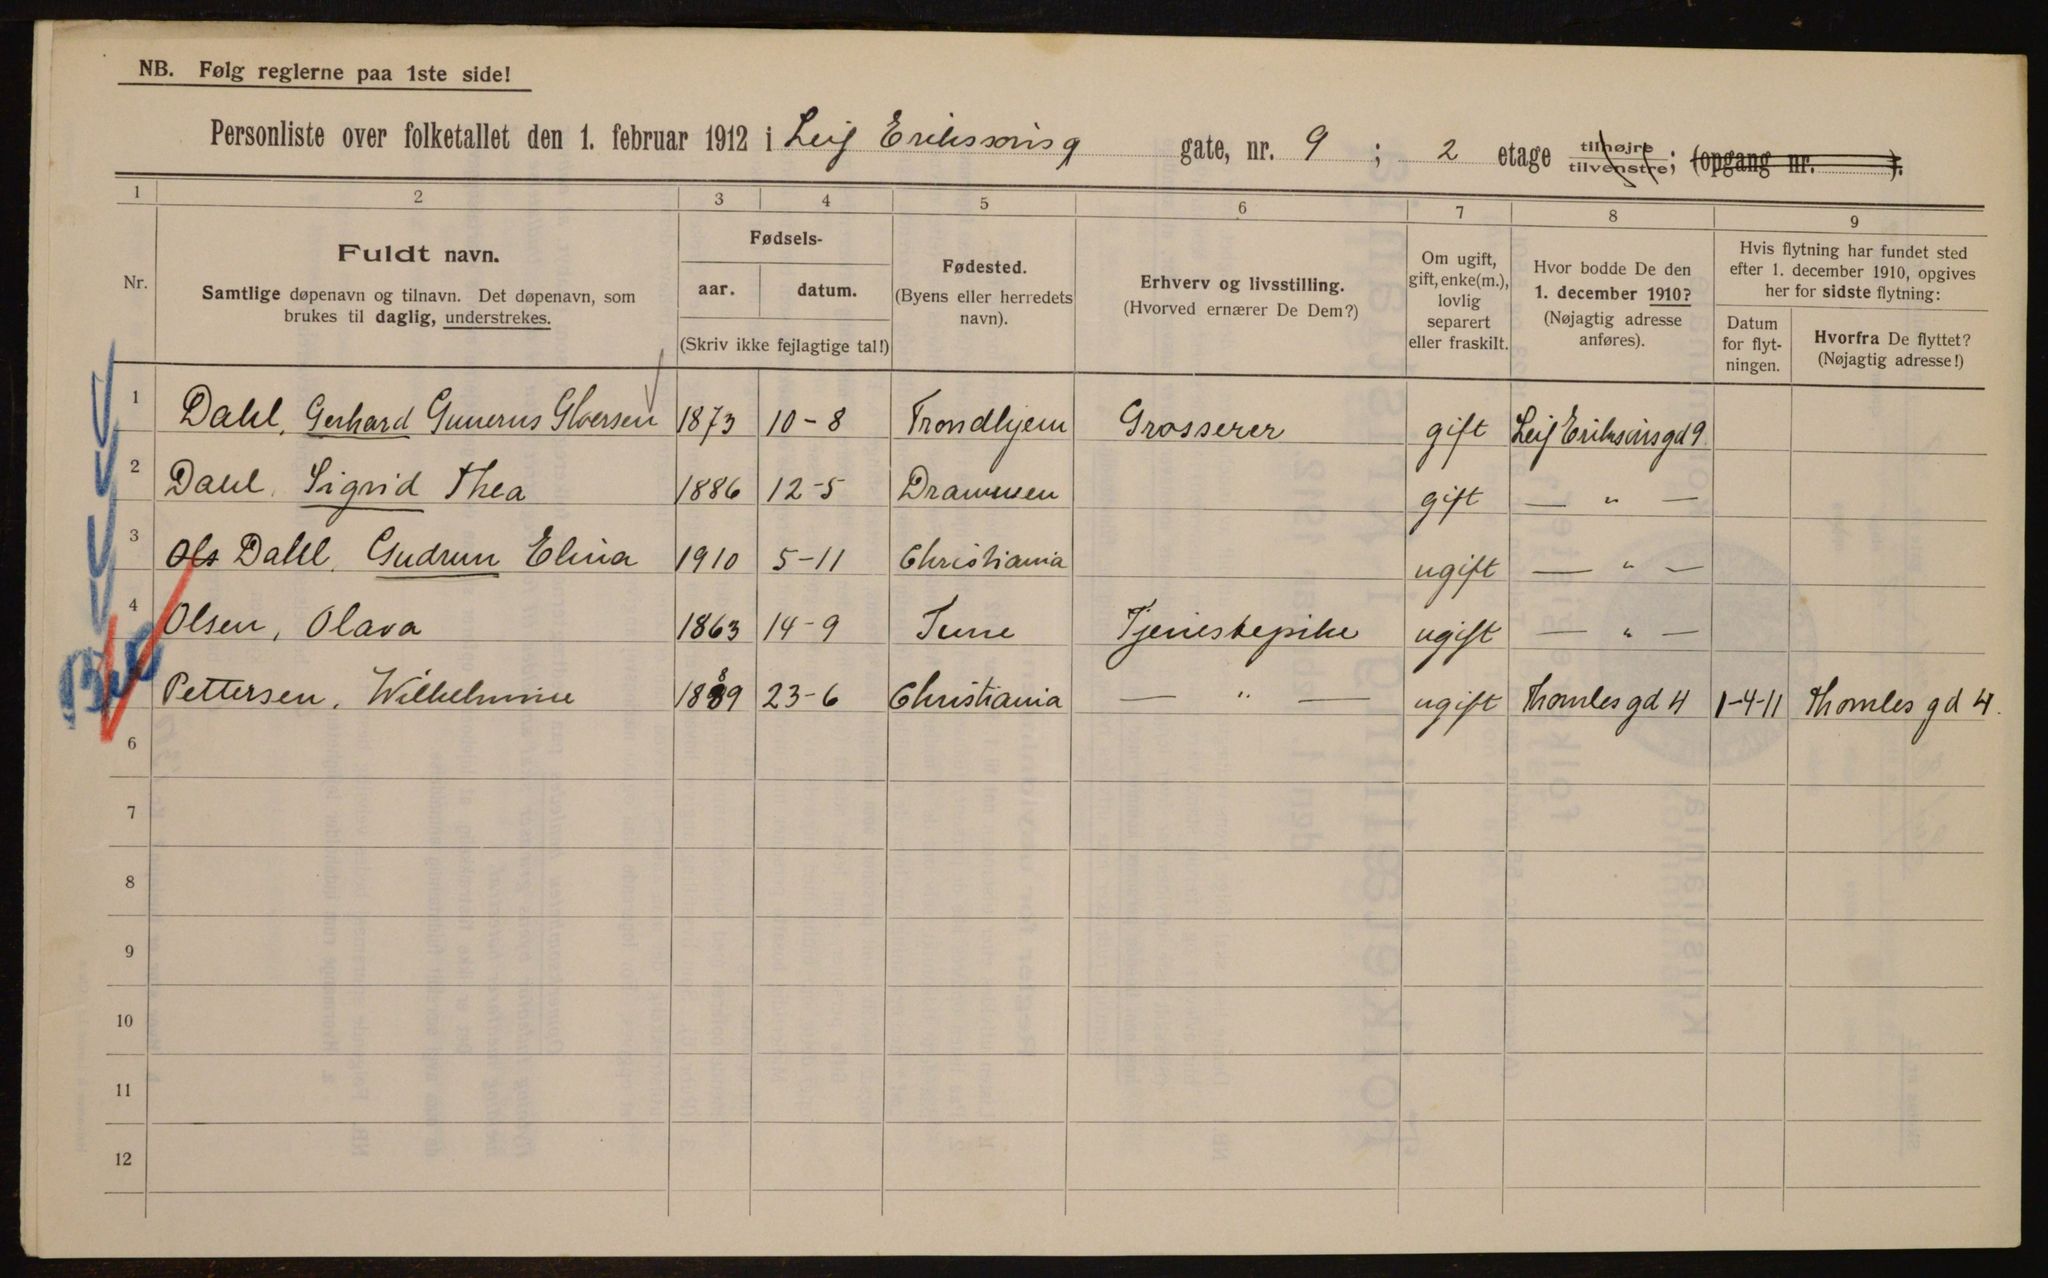 NB. Følg reglerne paa 1ste side!
Personliste over folketallet den 1. februar 1912 i Leif Eriksønsg gate, nr. 9 ; 2 etage tilhøjre tilvenstre; (opgang nr. ).
1 2 3 4 5 6 7 8 9
Nr.
Fuldt navn.
Samtlige døpenavn og tilnavn. Det døpenavn, som
brukes til daglig, understrekes.
Fødsels-
aar. datum.
(Skriv ikke fejlagtige tal!)
Fødested.
(Byens eller herredets
navn).
Erhverv og livsstilling.
(Hvorved ernærer De Dem?)
Om ugift,
gift, enke(m.),
lovlig
separert
eller fraskilt.
Hvor bodde De den
1. december 1910?
(Nøjagtig adresse
anføres).
Hvis flytning har fundet sted
efter 1. december 1910, opgives
her for sidste flytning:
Datum
for flyt-
ningen.
Hvorfra De flyttet?
(Nøjagtig adresse!)
1 Dahl, Gerhard Gunerus 1873 10-8 Trondhjem Grosserer gift Leif Eriksønsgd 9.
2 Dahl, Sigrid Thea 1886 12-5 Drammen gift — " —
3 Ols Dahl, Gudrun Elina 1910 5-11 Christiania ugift — " —
4 Olsen, Olava 1863 14-9 Tune Tjenestepike ugift — " —
Pettersen, Wilhelmine 1889 23-6 Christiania — " — ugift Thomlesgd 4 1-4-11 Thomles gd 4.
6
7
8
9
10
11
12